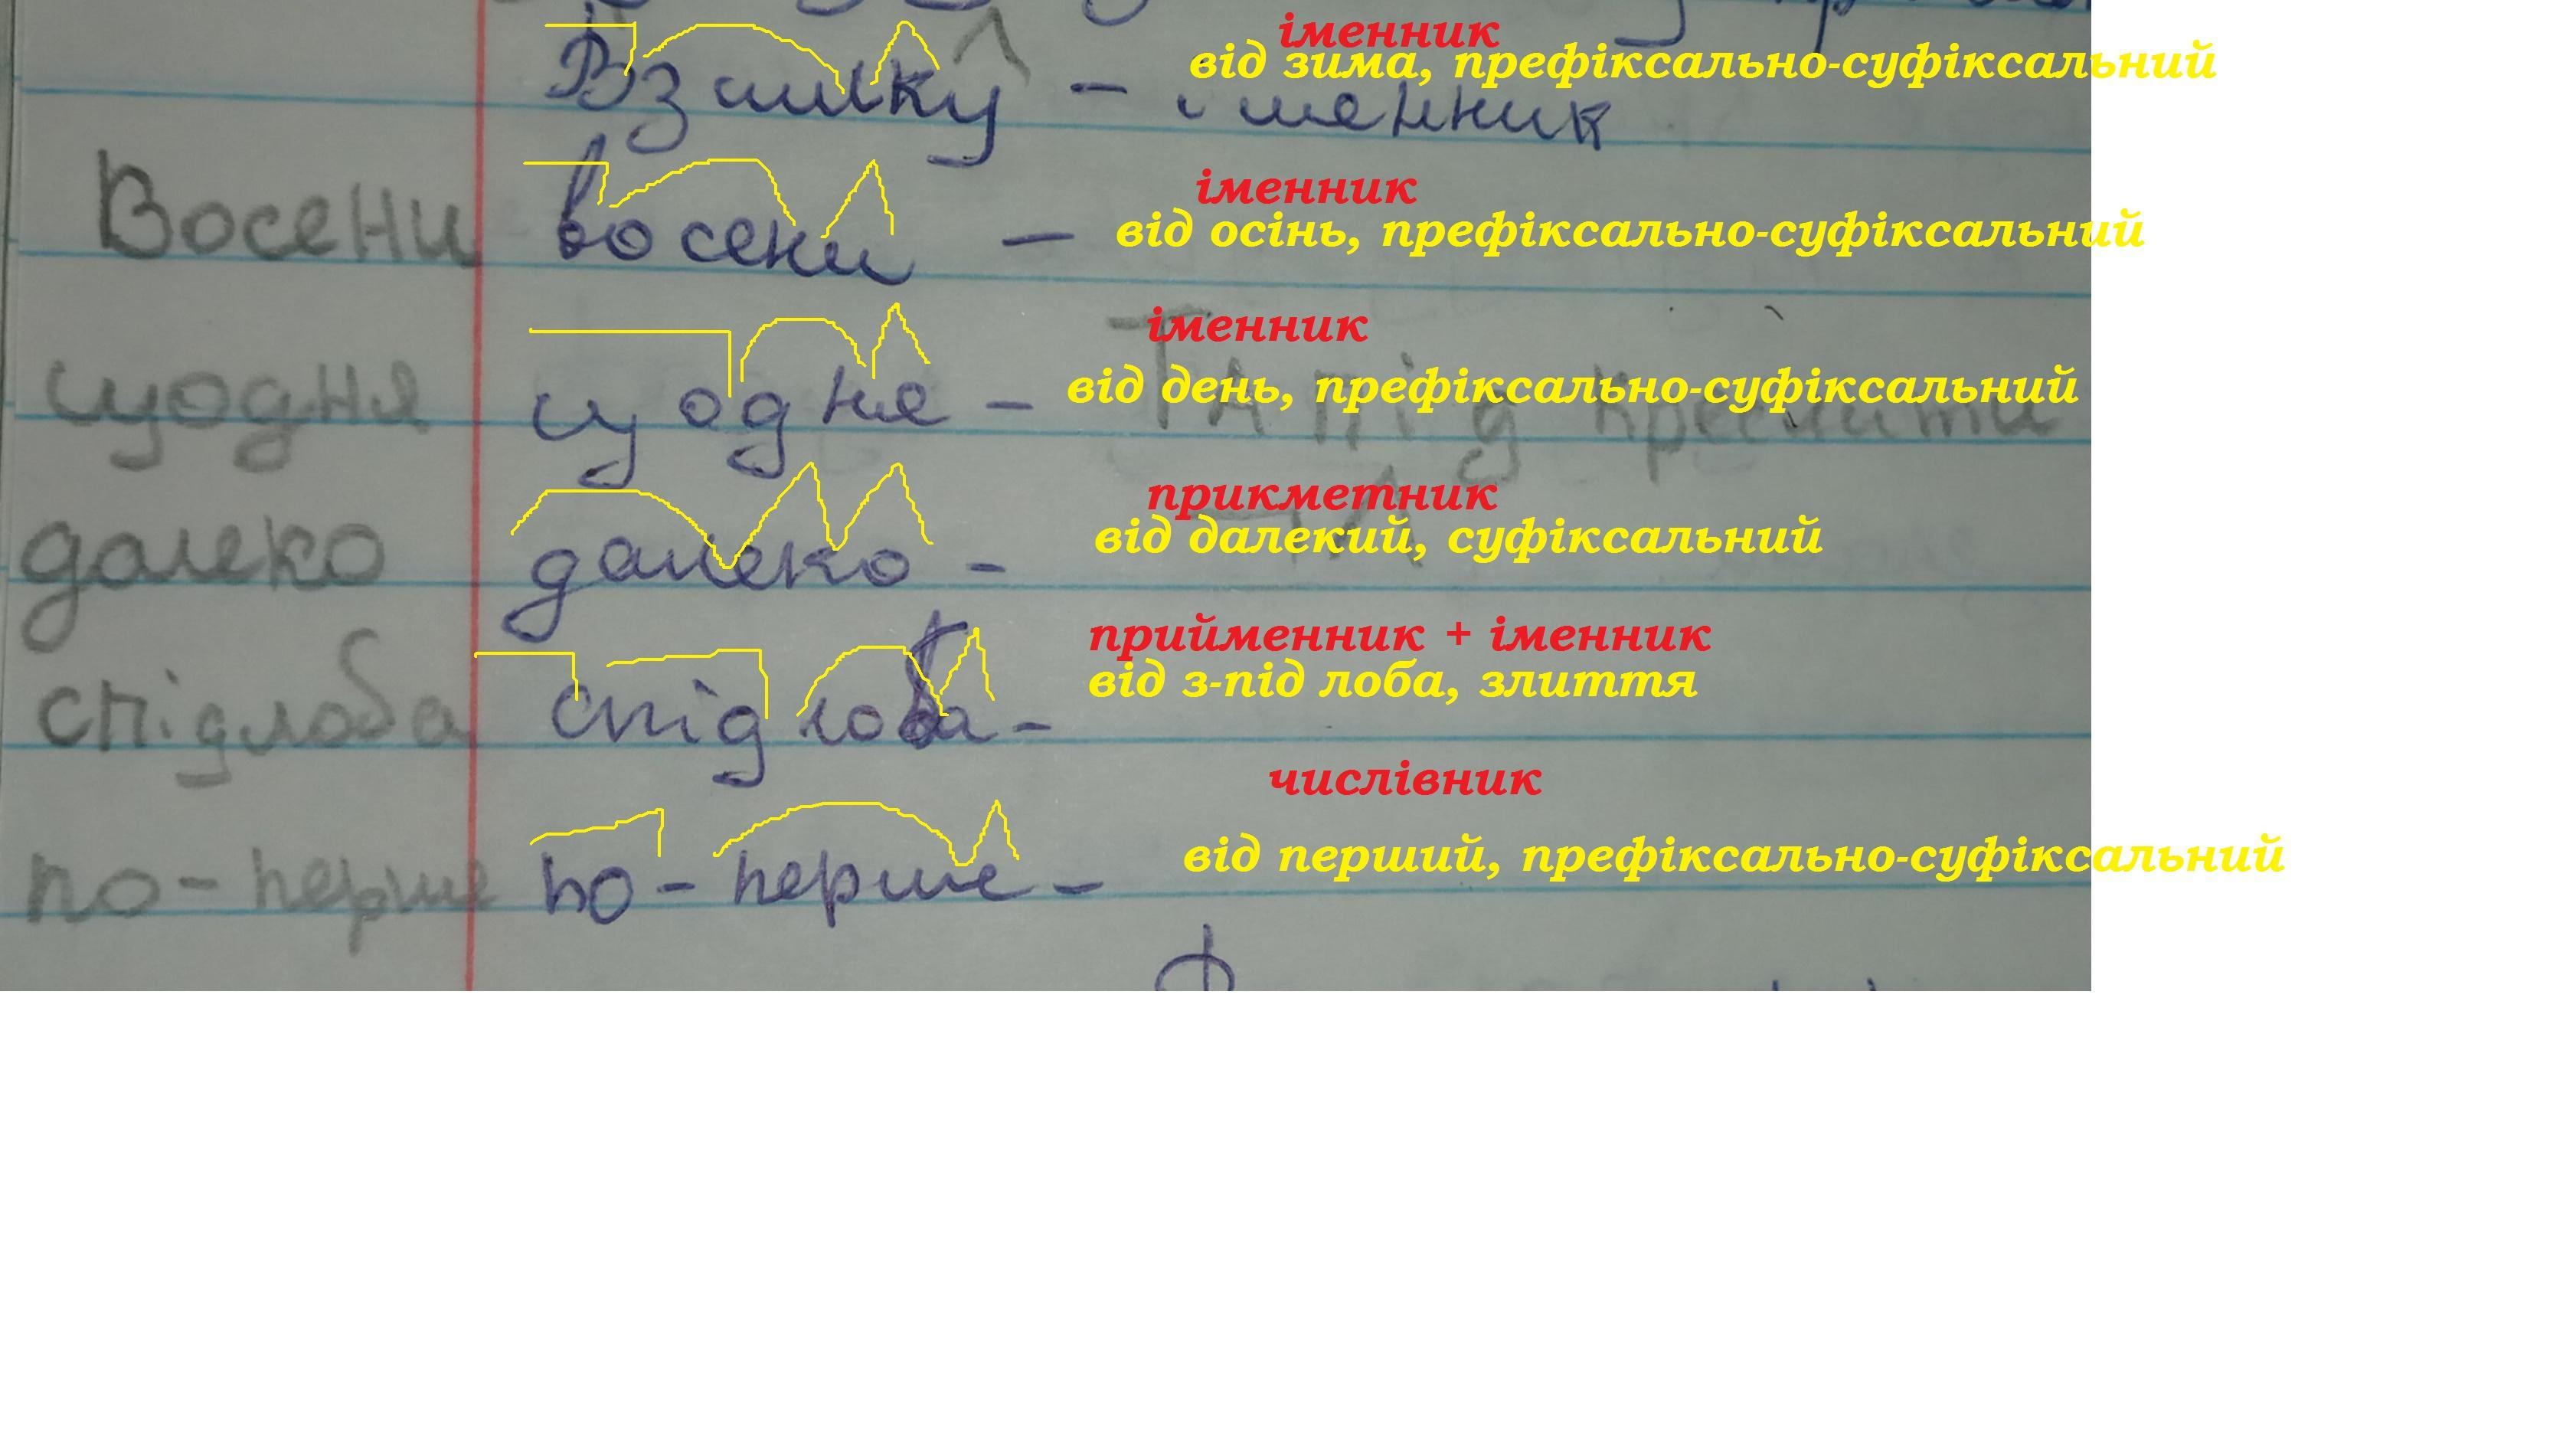 іменник
від зима, префіксально-суфіксальний
Взимку - іменник
іменник
Восени восени - від осінь, префіксально-суфіксальний
іменник
щодня щодня - від день, префіксально-суфіксальний
Та підкреслити
прикметник
далеко далеко - від далекий, суфіксальний
прийменник + іменник
від з-під лоба, злиття
спідлоба спідлоба -
числівник
від перший, префіксально-суфіксальний
по-перше по-перше -